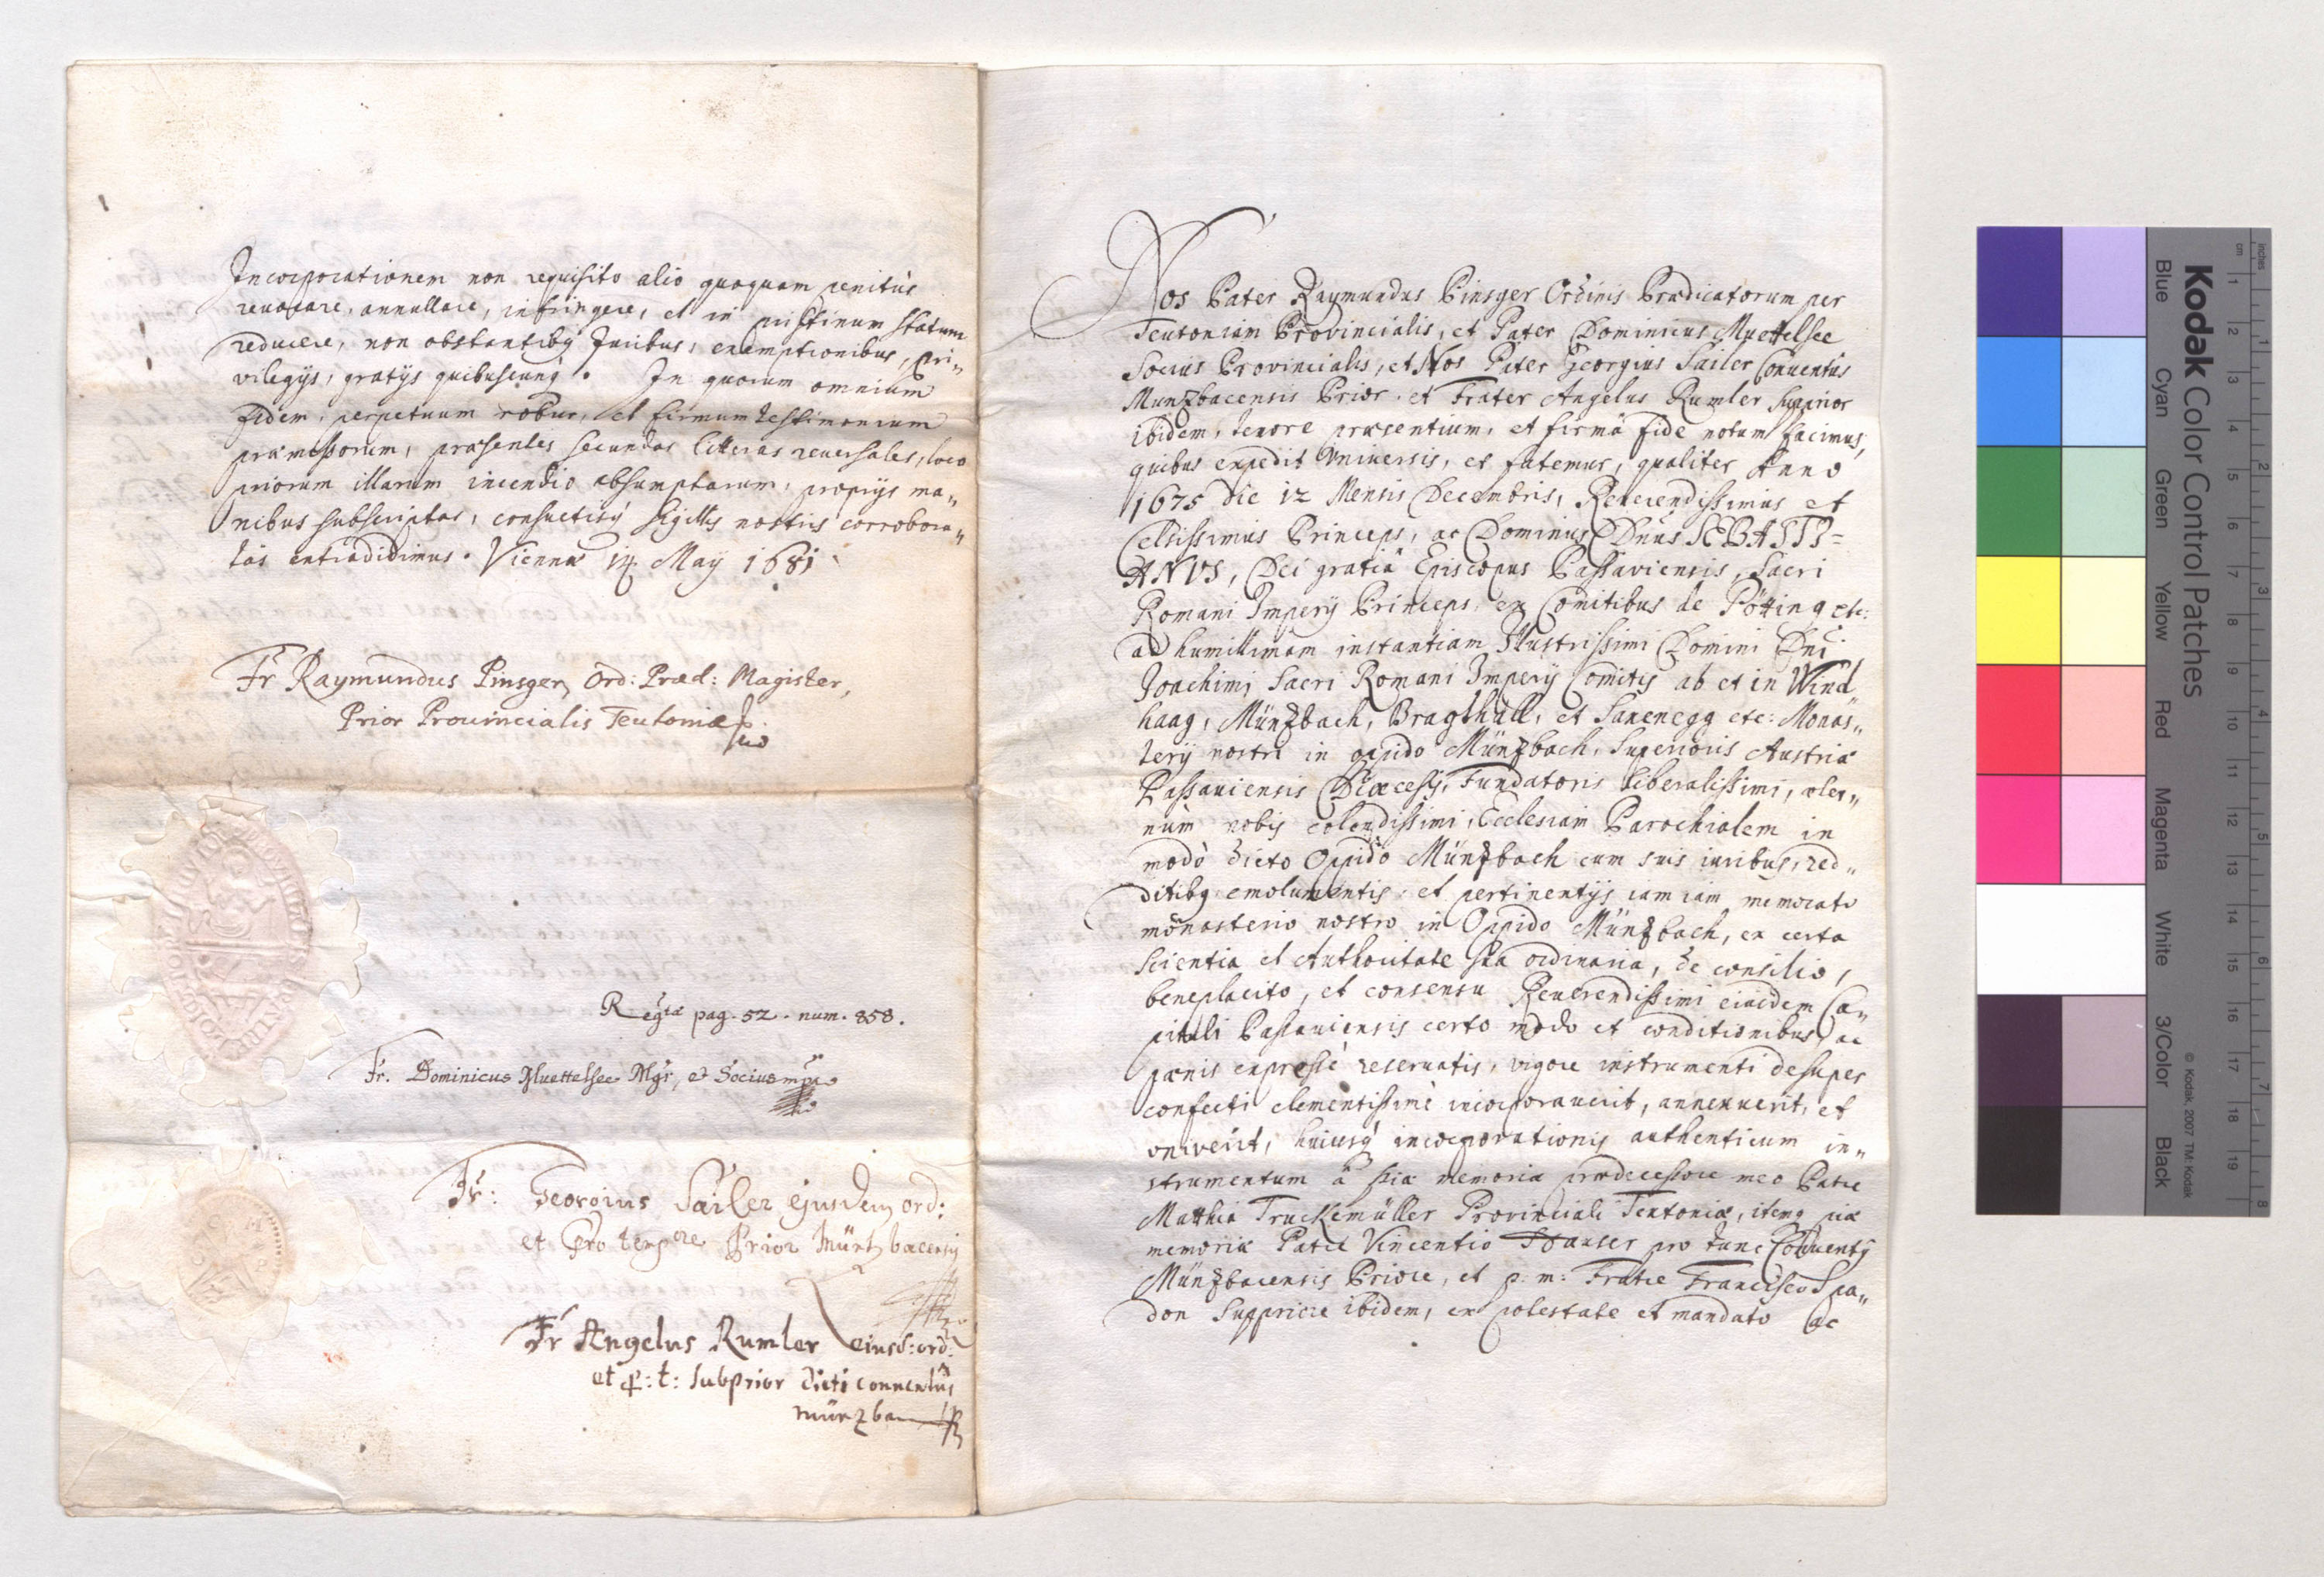 Incorporationem non requisito alio quoquam penitùs
reuocare, annullare, infringere, et in pristinum statum
reducere, non obstantibq Juribus, exemptionibus, pri„
vilegijs, gratijs quibuscunq̃. In quorum omnium
fidem, perpetuum robur, et firmum testimonium
præmissorum, præsentes secundas litteras reuersales, loco
priorum illarum incendio absumptarum, proprijs ma„
nibus subscriptas, consuetisq̃ sigillis nostris corrobora„
tas extradidimus. Viennæ 14 Maÿ 1681
Fr Raymundus Pinsger, Ord: Præd: Magister,
Prior Prouincialis Teutoniæ
Regta pag. 52. num. 858.
Fr. Dominicus Muettelsee Mgr, et Socius mpa
Fr: Georgius Sailer ejusdem ord:
et pro tempre Prior Müntzbacensis
Fr Angelus Rumler eiusd: ord:
et p: t: subprior dicti conuentus
münzba
Nos Pater Raymundus Pinsger Ordinis Prædicatorum per
Teutoniam Provincialis, et Pater Dominicus Muettelsee
Socius Provincialis, et Nos Pater Georgius Sailer Conuentus
Munzbacensis Prior, et Frater Angelus Rumler Supprior
ibidem, tenore præsentium, et firmâ fide notum facimus,
quibus expedit Vniuersis, et fatemur, qualiter Anno
1675 die 12 Mensis Decembris, Reuerendissimus et
Celsissimus Princeps, ac Dominus Dñus SEBASTI=
ANVS, Dei gratiâ Episcopus Passaviensis, Sacri
Romani Imperÿ Princeps, ex Comitibus de Pötting etc:
ad humillimam instantiam Illustrissimi Domini Dni
Joachimi Sacri Romani Imperÿ Comitis ab et in Wind„
haag, Münzbach, Pragthall, et Saxenegg etc: Monas„
terÿ nostri in oppido Münzbach, Superioris Austriæ
Passauiensis Diœcesis, Fundatoris liberalissimi, æter„
nùm nobis colendissimi, Ecclesiam Parochialem in
modò dicto Oppido Münzbach cum suis iuribus, red„
ditibq emolumentis, et pertinentijs iam iam memorato
monasterio nostro in Oppido Münzbach, ex certa
scientia et Authoritate sua ordinaria, de consilio,
beneplacito, et consensu Reuerendissimi eiusdem Ca„
pituli Passauiensis certo modo et conditionibus, ac
pœnis expressè reseruatis, vigore instrumenti desuper
confecti clementissimè incorporauerit, annexuerit, et
vniverit, huiusq̃ incorporationis authenticum in„
strumentum â piæ memoriæ prædecessore meo Patre
Matthia Truckemüller Provinciali Teutoniæ, itemq piæ
memoriæ Patre Vincentio Hauser pro tunc Conuentq
Münzbacensis Priore, et p: m: Fratre Francisco Spa„
don Suppriore ibidem, ex potestate et mandato ac
Kodak Color Control Patches
Blue Cyan Green Yellow Red Magenta White 3/Color Black
© Kodak, 2007 TM: Kodak
inches 1 2 3 4 5 6 7 8
cm 1 2 3 4 5 6 7 8 9 10 11 12 13 14 15 16 17 18 19